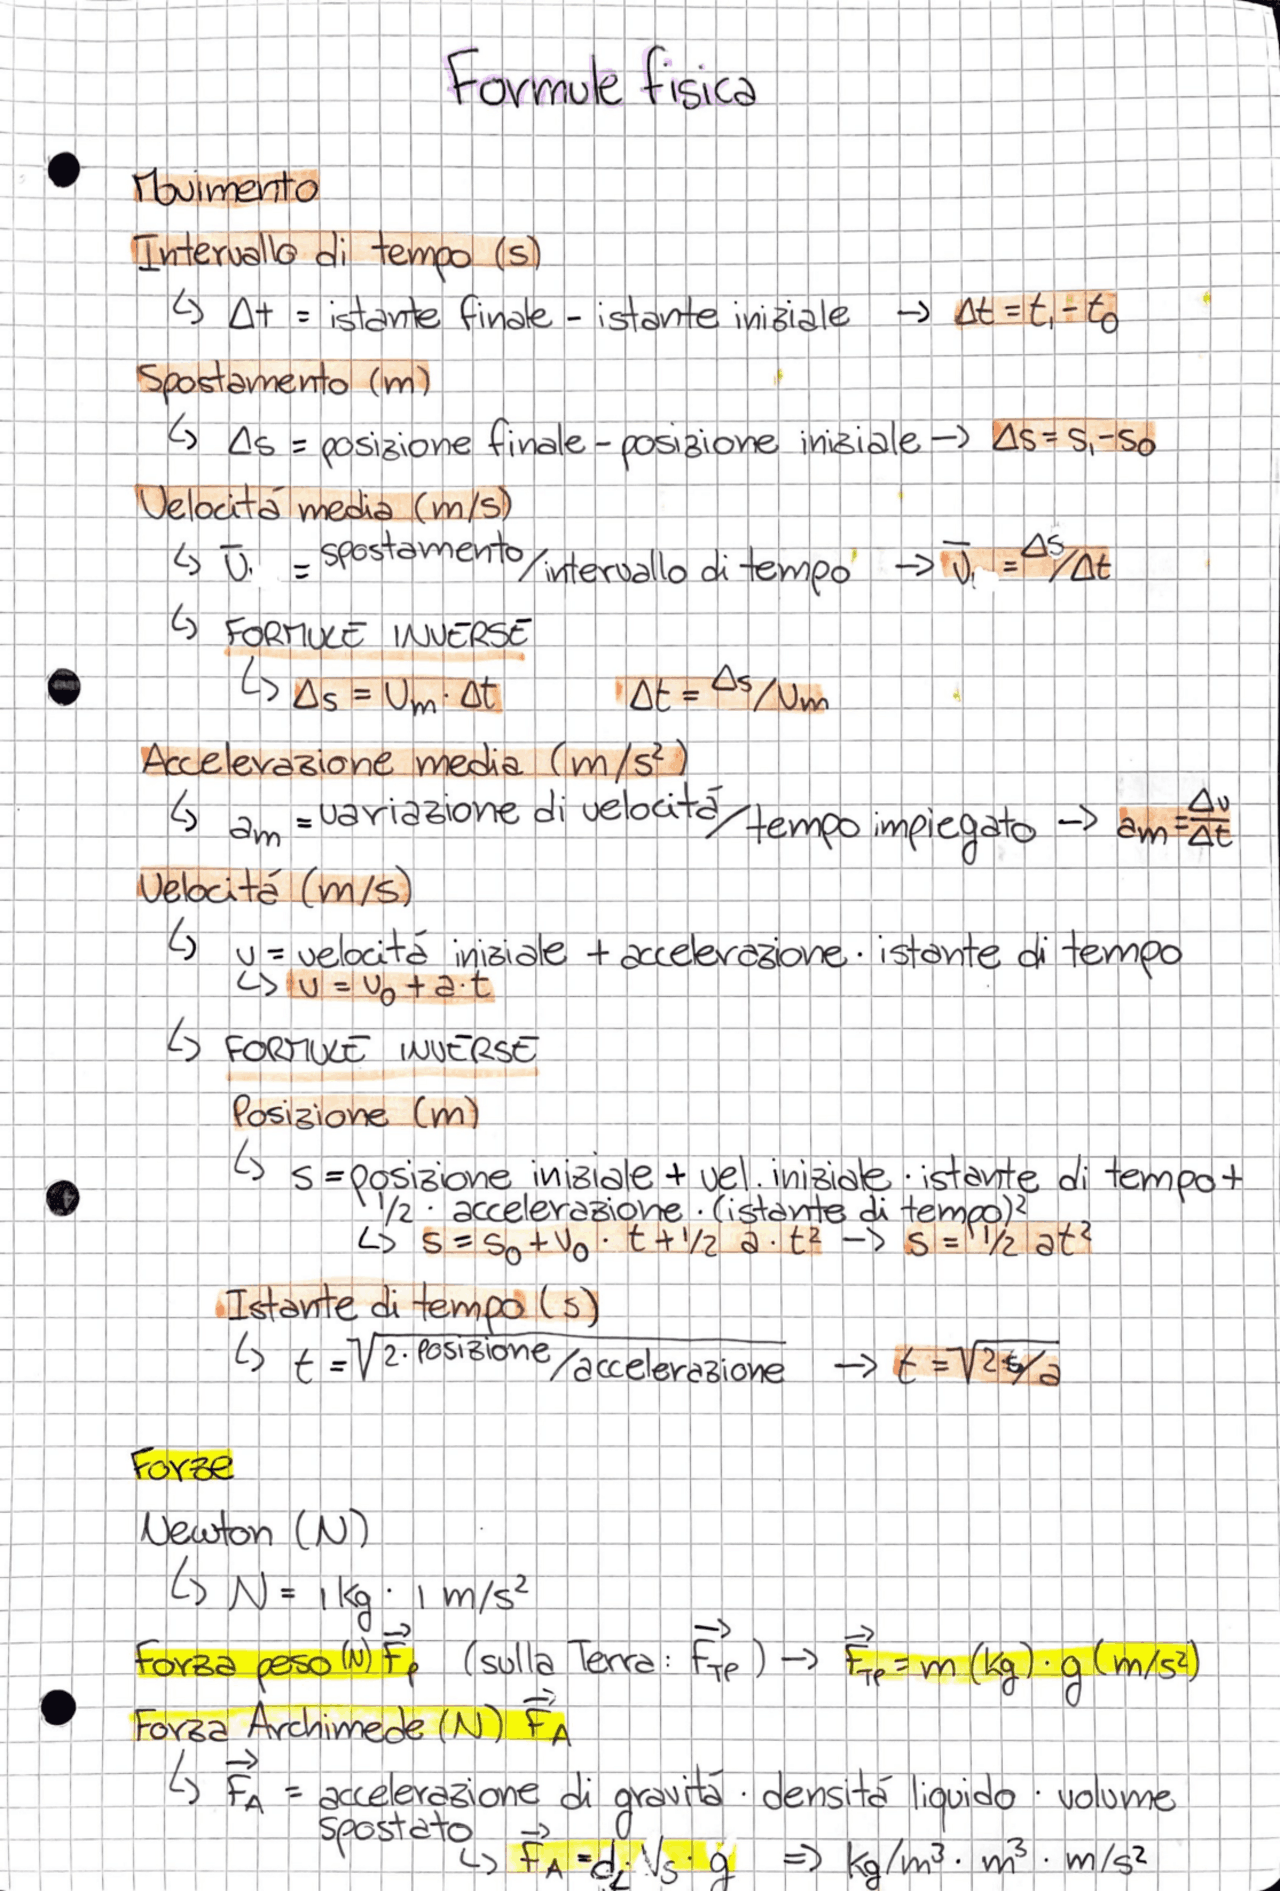 Formule fisica
Movimento
Intervallo di tempo (s)
↳ Δt = istante finale - istante iniziale → Δt = t₁ - t₀
Spostamento (m)
↳ Δs = posizione finale - posizione iniziale → Δs = s₁ - s₀
Velocitá media (m/s)
↳ v̅. = spostamento/intervallo di tempo → v̅. = Δs/Δt
↳ FORMULE INVERSE
↳ Δs = vm · Δt Δt = Δs/vm
Accelerazione media (m/s²)
↳ am = variazione di velocitá/tempo impiegato → am = Δv/Δt
Velocitá (m/s)
↳ v = velocitá iniziale + accelerazione · istante di tempo
↳ v = v₀ + a · t
↳ FORMULE INVERSE
Posizione (m)
↳ s = posizione iniziale + vel. iniziale · istante di tempo +
1/2 · accelerazione · (istante di tempo)²
↳ s = s₀ + v₀ · t + 1/2 a · t² → s = 1/2 at²
Istante di tempo (s)
↳ t = √2 · posizione/accelerazione → t = √2s/a
Forze
Newton (N)
↳ N = 1 kg · 1 m/s²
Forza peso (N) F⃗p (sulla Terra: F⃗TP) → F⃗TP = m (kg) · g (m/s²)
Forza Archimede (N) F⃗A
↳ F⃗A = accelerazione di gravitá · densitá liquido · volume
spostato
↳ F⃗A = dL · Vs · g ⇒ kg/m³ · m³ · m/s²